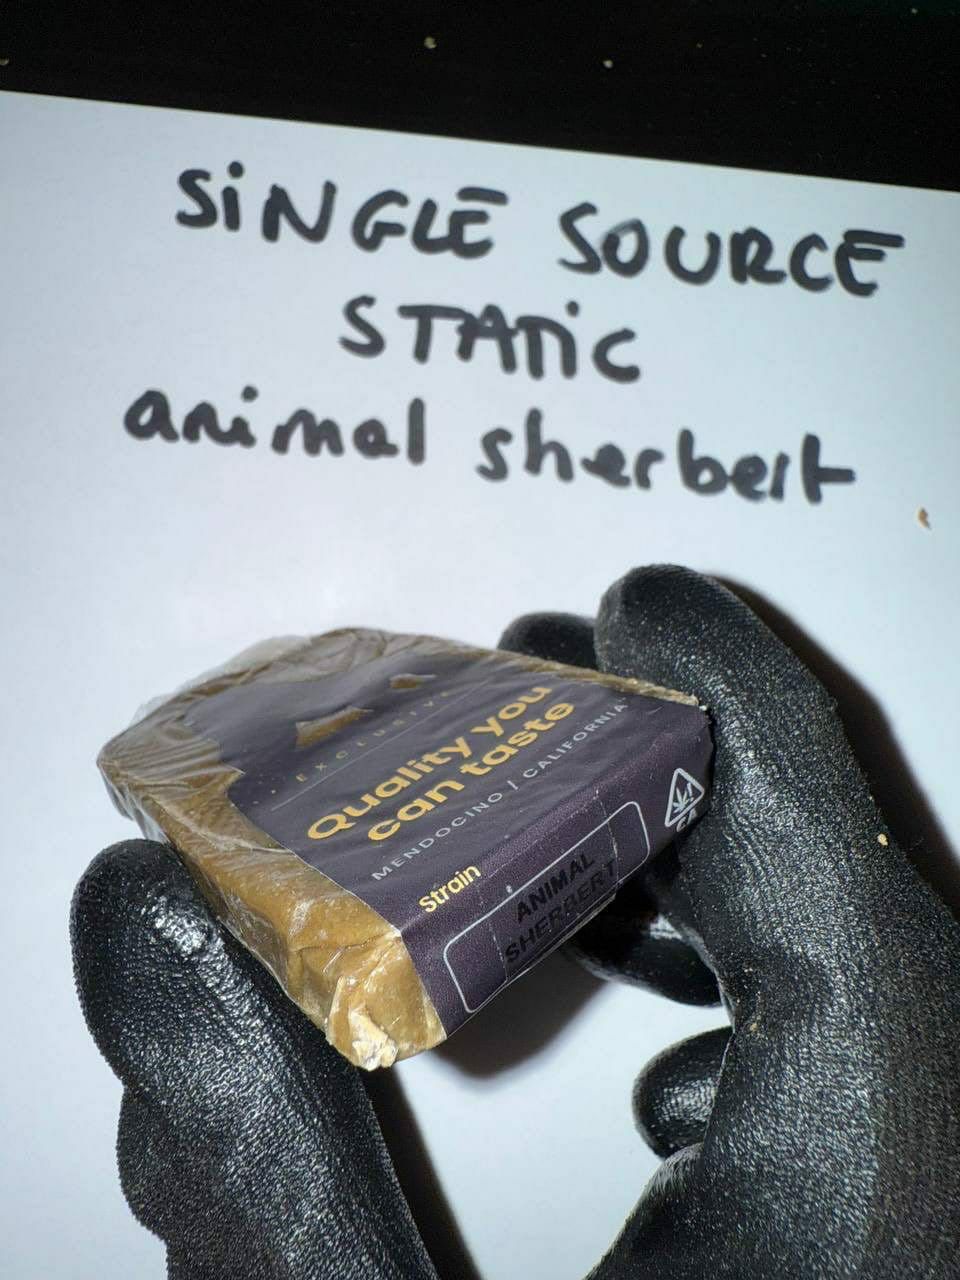 SiNGLE SOURCE
STATiC
animal sherbert
EXCLUSIVE
Quality you
can taste
MENDOCINO / CALIFORNIA
Strain
ANIMAL
SHERBERT
CA